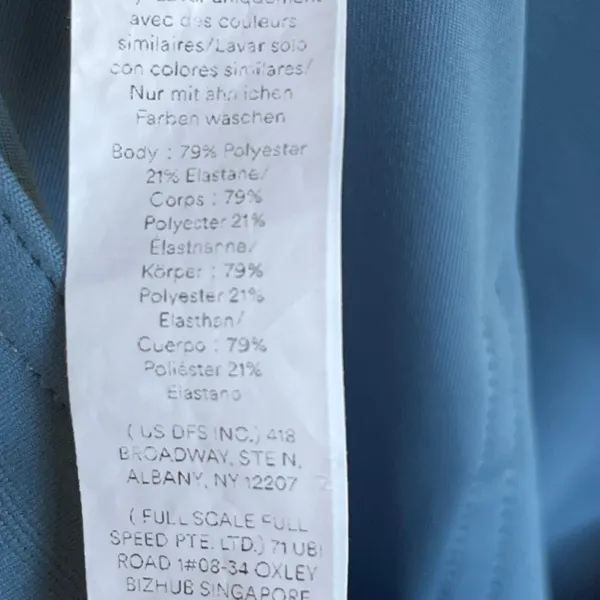 avec des couleurs
similaires/Lavar solo
con colores similares/
Nur mit ähnlichen
Farben waschen
Body : 79% Polyester
21% Elastane/
Corps : 79%
Polyester 21%
Élasthanne/
Körper : 79%
Polyester 21%
Elasthan/
Cuerpo : 79%
Poliéster 21%
Elastano
( US DFS INC.) 418
BROADWAY, STE N,
ALBANY, NY 12207
( FULL SCALE FULL
SPEED PTE. LTD.) 71 UBI
ROAD 1#08-34 OXLEY
BIZHUB SINGAPORE